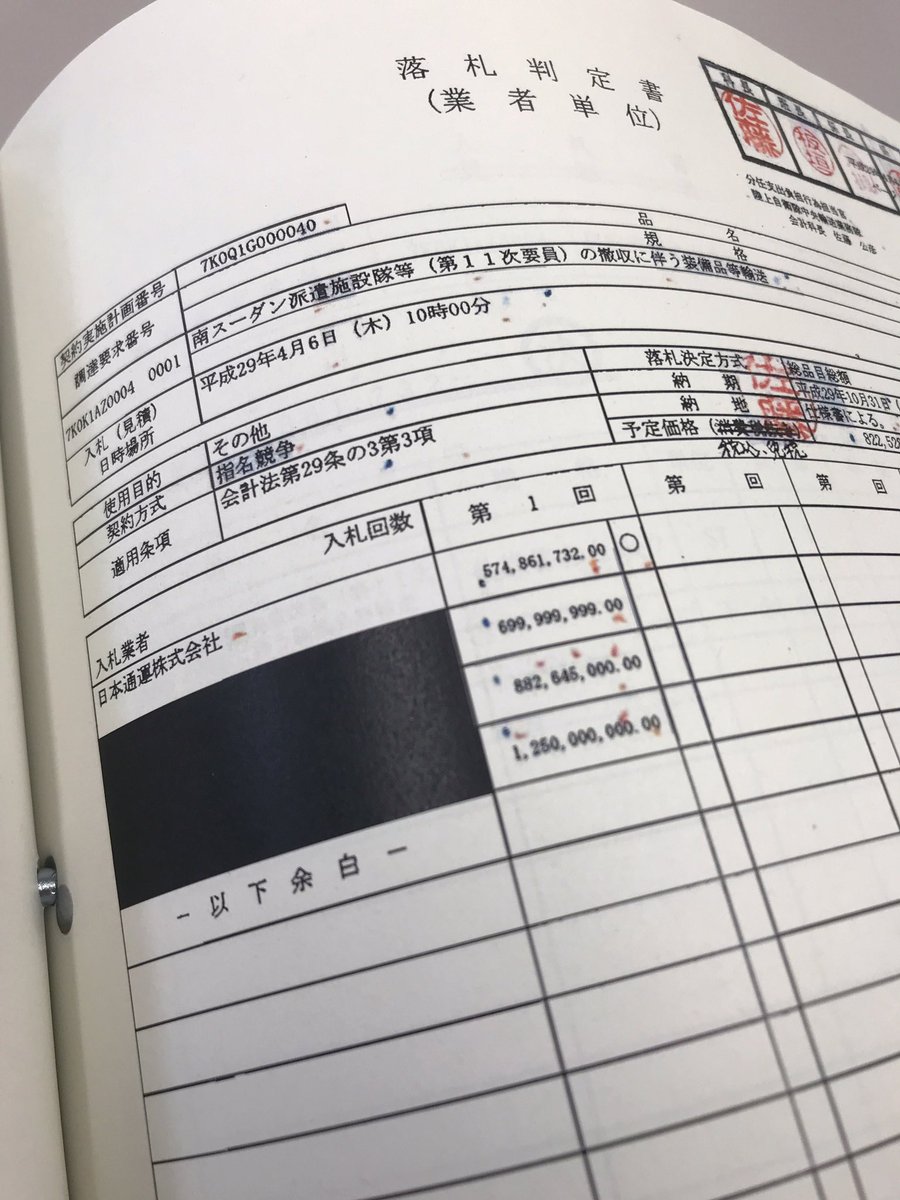 落札判定書
(業者単位)
科長
班長
佐藤
板垣
分任支出負担行為担当官
陸上自衛隊中央輸送業務隊
会計科長 佐藤 公彦
契約実施計画番号
7K0Q1G000040
品 名
規 格
調達要求番号
7K0K1AZ0004 0001
南スーダン派遣施設隊等(第11次要員)の撤収に伴う装備品等輸送
入札(見積)
日時場所
平成29年4月6日(木)10時00分
使用目的
その他
契約方式
指名競争
適用条項
会計法第29条の3第3項
落札決定方式
総品目総額
納 期
平成29年10月31日
納 地
仕様書による。
予定価格
822,52
税込、免税
入札回数
第 1 回
第 回
第 回
入札業者
日本通運株式会社
574,861,732.00 ○
699,999,999.00
882,645,000.00
1,250,000,000.00
-以下余白-